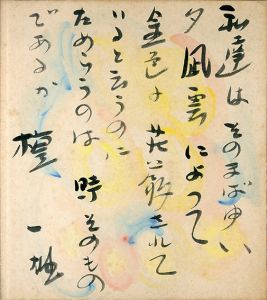 私達は そのまばゆい
夕凪雲によって
金色に荘厳されて
いると云うのに
ためらうのは 時そのもの
であるが
檀 一雄